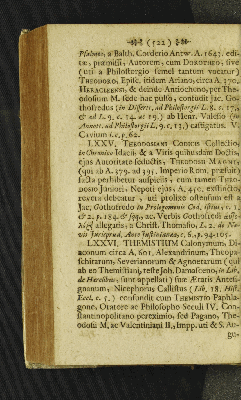 (122)
Psalmos, a Balth. Corderio Antw. A. 1643. edi-
tæ, præmissi, Autorem, cum DOROTHEO, sive
(uti a Philostorgio semel tantum vocatur)
THEODORO, Episc. itidem Ariano, circa A. 390,
HERACLEENSI, & deinde Antiocheno, per The-
odosium M. sede hac pulso, confudit Jac. Go-
thofredus (in Dissert. ad Philostorgii L. 8. c. 17,
& ad L. 9. c. 14. ac 19.) ab Henr. Valesio (in
Annott. ad Philostorgii L. 9. c. 13.) castigatus. V.
Cavium l. c. p. 62.
LXXV. THEODOSIANI CODICIS Collectio,
in Chronico Idacii, & a Viris quibusdam Doctis,
ejus Autoritate seductis, THEODOSIO MAGNO,
(qui ab A. 379. ad 391. Imperio Rom. præfuit)
facta perhibetur auspiciis, cum tamen Theo-
dosio Juniori, Nepoti ejus, A. 450. exstincto,
revera debeatur, uti prolixe ostensum est a
Jac. Gothofredo in Prolegomenis Cod. istius, c. 1.
& 2. p. 184. & sqq. ac Verbis Gothofredi
allegatis, a Christ. Thomasio, L. 2. de Næ-
vis Jurisprud. Ante-Justinianeæ, c. 6. p. 94-105.
LXXVI. THEMISTIUM Calonymum, Di-
aconum circa A. 601, Alexandrinum, Theopa-
schitarum, Severianorum & Agnoetarum (qui
ab eo Themistiani, teste Joh. Damasceno, in Lib.
de Hæresibus, sunt appellati) suæ Ætatis Antesi-
gnanum, Nicephorus Callistus (Lib. 18. Hist.
Eccl. c. 5.) confundit cum THEMISTIO Paphla-
gone, Oratore ac Philosopho Seculi IV, Con-
stantinopolitano perexímio, sed Pagano, Theo-
dosii M. ac Valentiniani II, Impp. uti & S. Au-
gu-